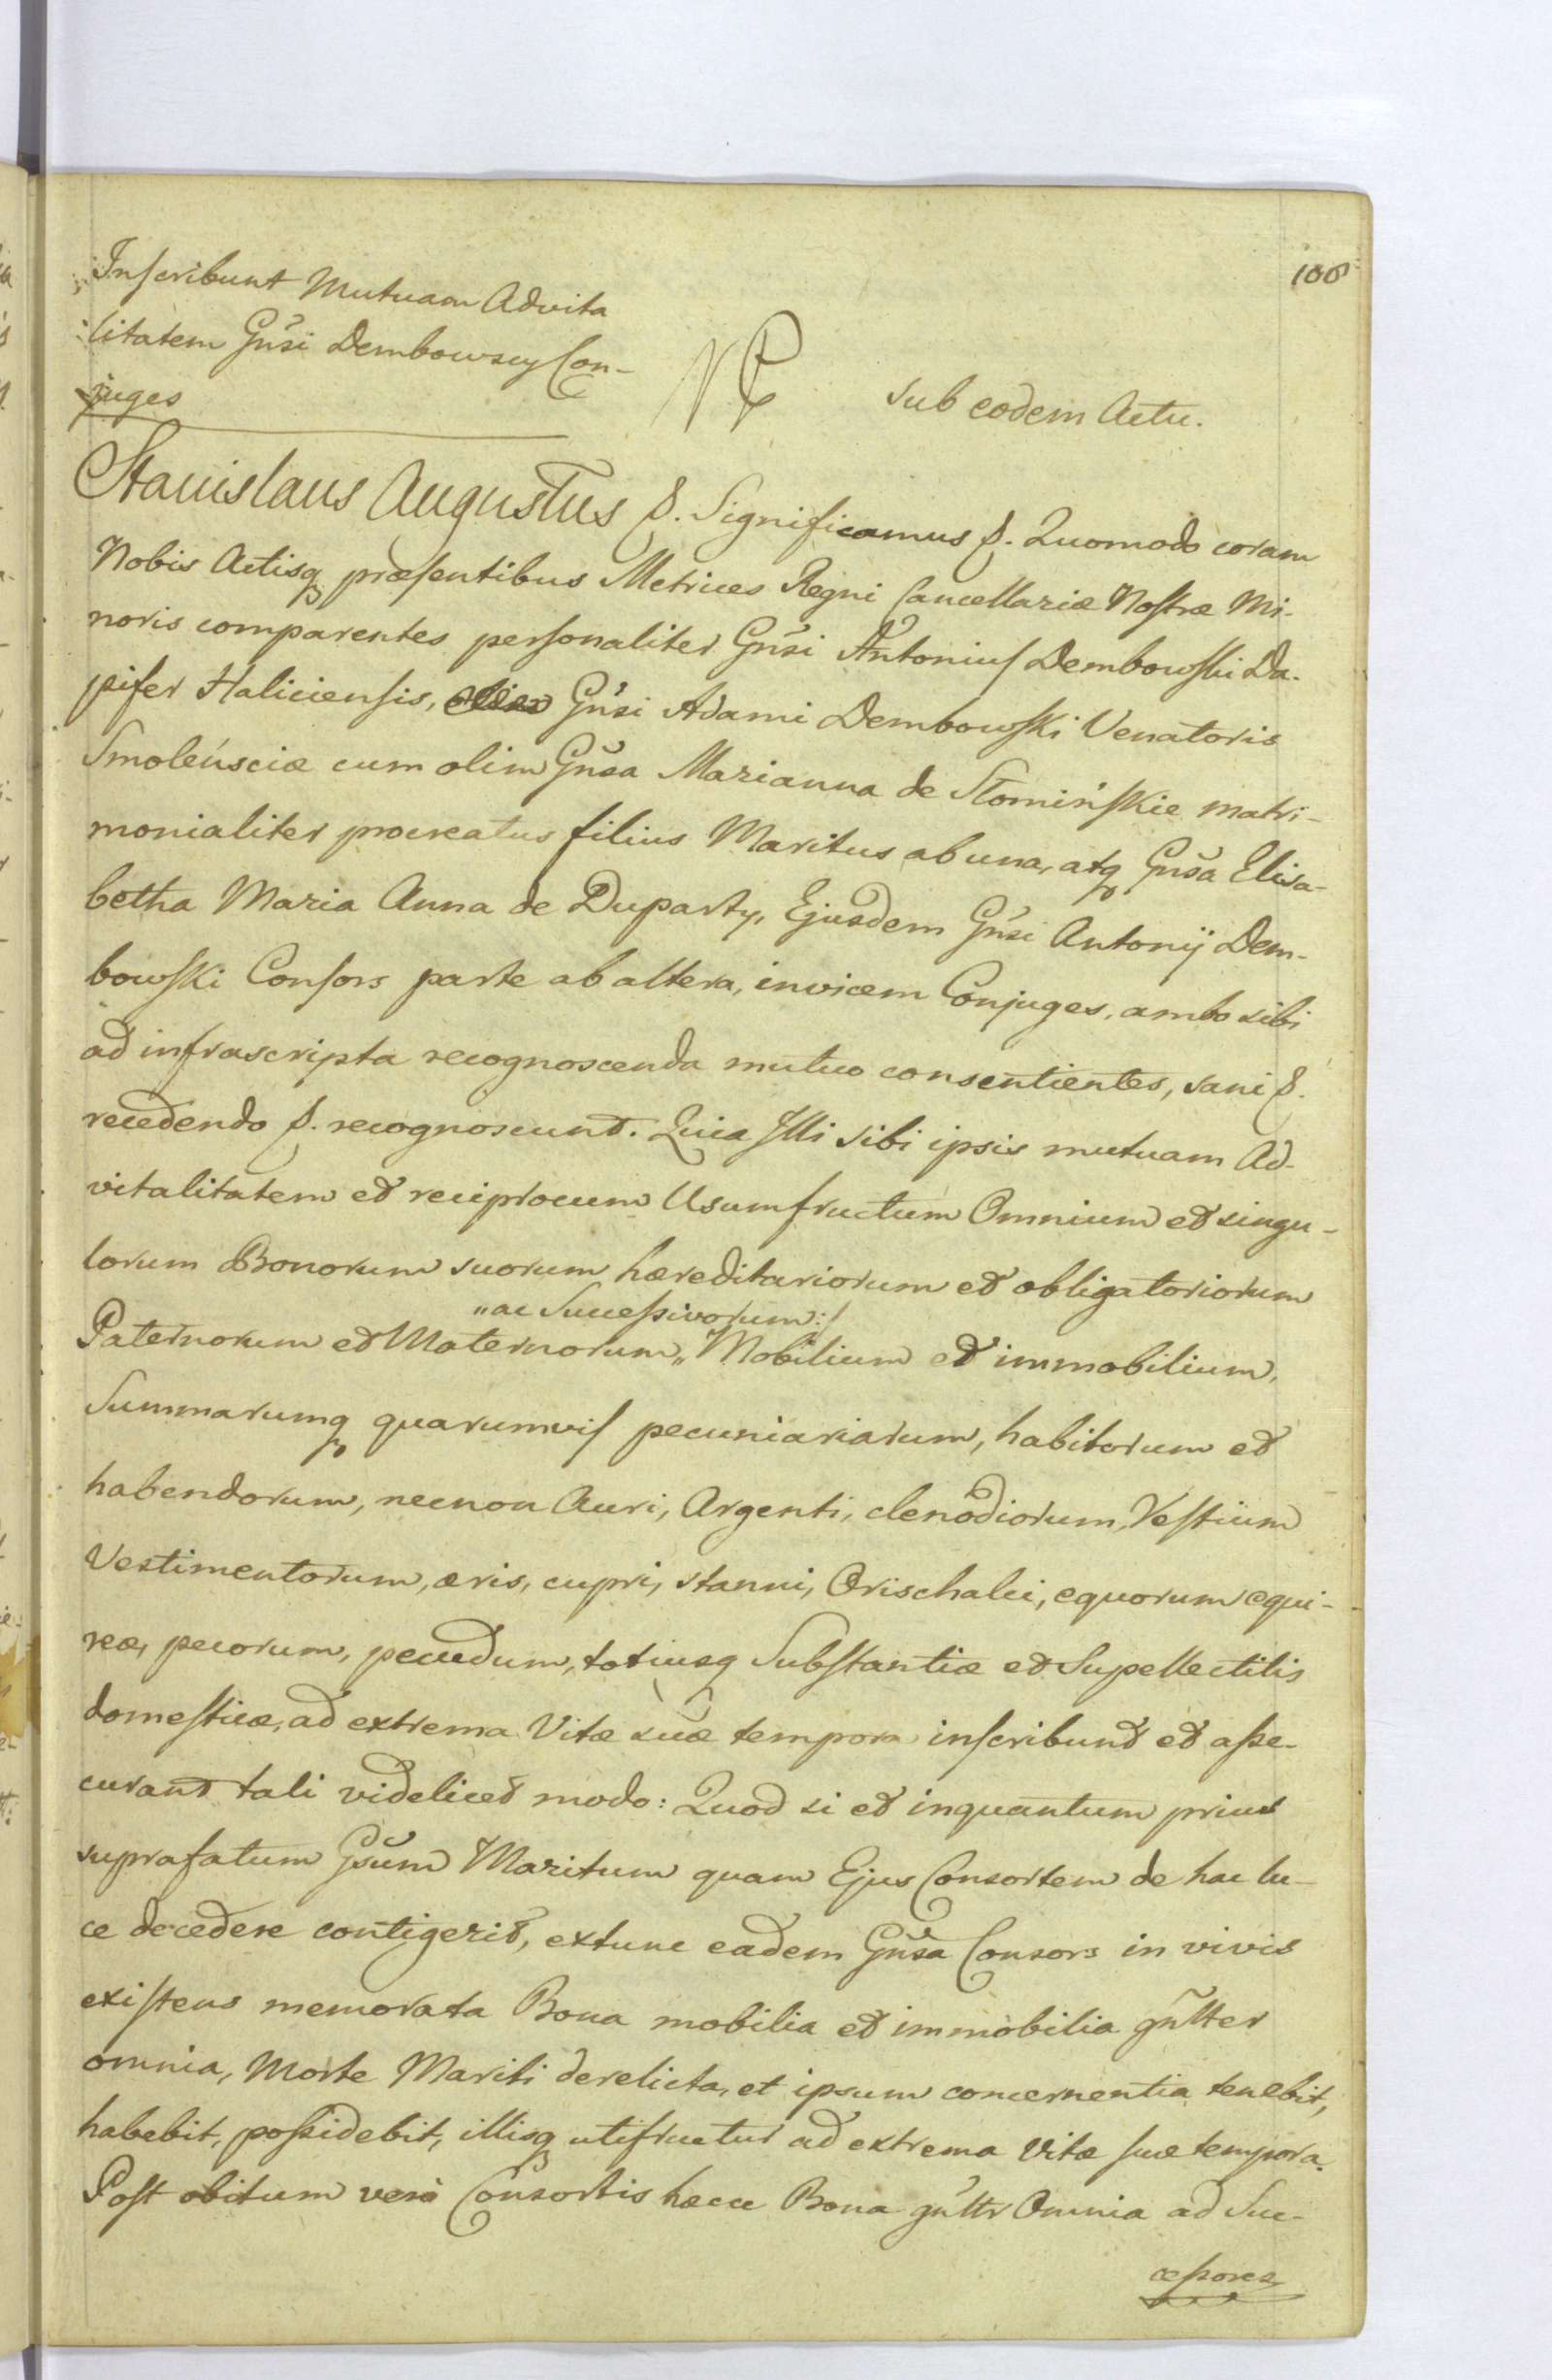 106
Inscribunt Mutuam Advita
litatem Gnsi Dembowscy Con-
juges
sub eodem Actu.
Stanislaus Augustus &. Significamus &. Quomodo coram
Nobis Actisq præsentibus Metrices Regni Cancellariæ Nostræ Mi-
noris comparentes personaliter Gnsi Antonius Dembowski Da-
pifer Haliciensis, Gnsi Adami Dembowski Venatoris
Smoleńsciæ cum olim Gnsa Marianna de Słomińskie matri-
monialiter procreatus filius Maritus ab una, atq Gnsa Elisa-
betha Maria Anna de Duparty, Ejusdem Gnsi Antonij Dem-
bowski Consors parte ab altera, invicem Conjuges, ambo sibi
ad infrascripta recognoscenda mutuo consentientes, sani &.
recedendo &. recognoscunt. Quia Illi sibi ipsis mutuam Ad-
vitalitatem et reciprocum Usumfructum Omnium et singu-
lorum Bonorum suorum hæreditariorum et obligatoriorum
„ac Successivorum:/
Paternorum et Maternorum„ Mobilium et immobilium,
Summarumq quarumvis pecuniariarum, habitorum et
habendorum, necnon Auri, Argenti, clenodiorum, Vestium
Vestimentorum, æris, cupri, stanni, Orischalci, equorum equi-
reæ, pecorum, pecudum, totiusq Substantiæ et Supellectilis
domesticæ, ad extrema Vitæ suæ tempora inscribunt et asse-
curant tali videlicet modo: Quod si et inquantum prius
suprafatum Gsum Maritum quam Ejus Consortem de hac lu-
ce decedere contigerit, extunc eadem Gnsa Consors in vivis
existens memorata Bona mobilia et immobilia gnlter
omnia, Morte Mariti derelicta, et ipsum concernentia tenebit,
habebit, possidebit, illisq utifructur ad extrema Vitæ suæ tempora.
Post obitum verò Consortis hæcce Bona gnltr Omnia ad Suc-
cessores